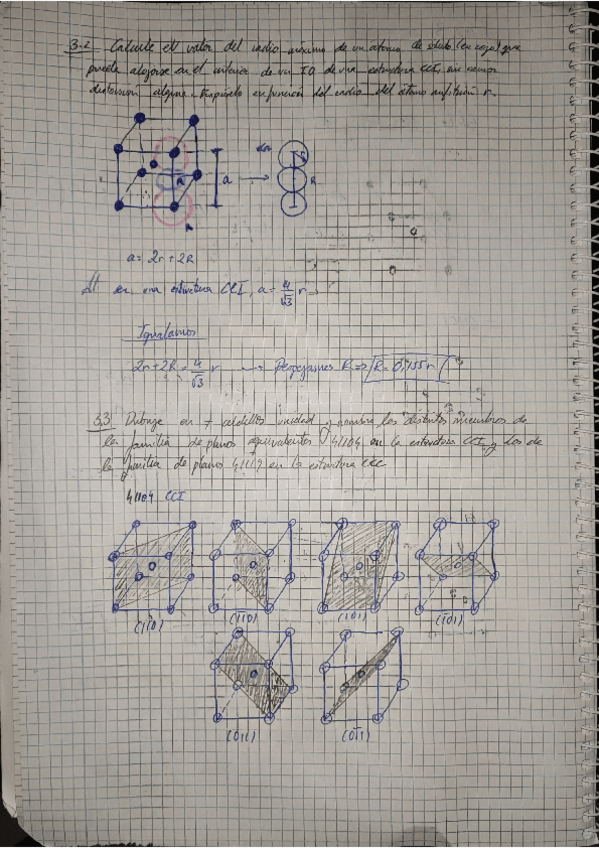 3.2 Calcule el valor del radio máximo de un átomo de soluto (en rojo) que
pueda alojarse en el interior de un I.O de una estructura CCI, sin causar
distorsión alguna. Expréselo en función del radio del átomo r.
R
a
R
R
a = 2r + 2R
en una estructura CCI, a = 4/√3 r
Igualamos
2r + 2R = 4/√3 r → Despejamos R => R = 0,155 r
3.3 Dibuje en 7 celdillas unidad y nombre los distintos miembros de
la familia de planos equivalentes {110} en la estructura CCI, y los de
la familia de planos {111} en la estructura CCC
{110} CCI
(110) (1̅10) (101) (1̅01)
(011) (01̅1)